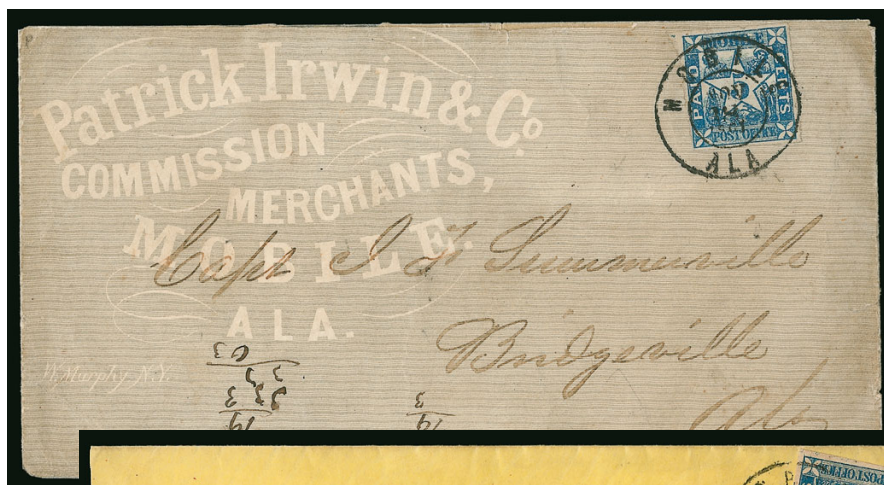 Patrick Irwin & Co
COMMISSION
MERCHANTS,
MOBILE.
ALA.
W. Murphy. N.Y.
MOBILE
PAID
5
CENTS
POST OFFICE
MOBILE
ALA
Capt J T Summerville
Bridgeville
Ala
63
3
19
3
19
POST OFFICE